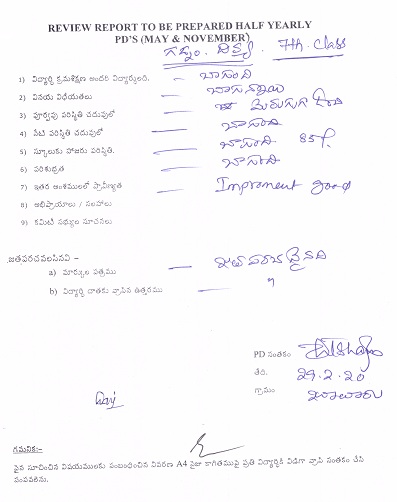 REVIEW REPORT TO BE PREPARED HALF YEARLY
PD'S (MAY & NOVEMBER)
గడ్డం. దీక్ష. 7th-Class
1) విద్యార్థి క్రమశిక్షణ అందరి విద్యార్థులది. — బాగుంది
2) వినయ విధేయతలు — బాగున్నాయి
3) పూర్వపు పరిస్థితి చదువులో —
4) నేటి పరిస్థితి చదువులో — బాగుంది
5) స్కూలుకు హాజరు పరిస్థితి. — బాగుంది 85%
6) పరిశుభ్రత — బాగుంది
7) ఇతర అంశములలో ప్రావీణ్యత — Improment good
8) అభిప్రాయాలు / సలహాలు
9) కమిటి సభ్యుల సూచనలు
జతపరచవలసినవి –
a) మార్కుల పత్రము — జత పరచనైనది
b) విద్యార్థి దాతకు వ్రాసిన ఉత్తరము — "
PD సంతకం
తేది. 29.2.20
గ్రామం
గమనిక:-
పైన సూచించిన విషయములకు సంబంధించిన వివరణ A4 సైజు కాగితముపై ప్రతి విద్యార్థికి విడిగా వ్రాసి సంతకం చేసి
పంపవలెను.